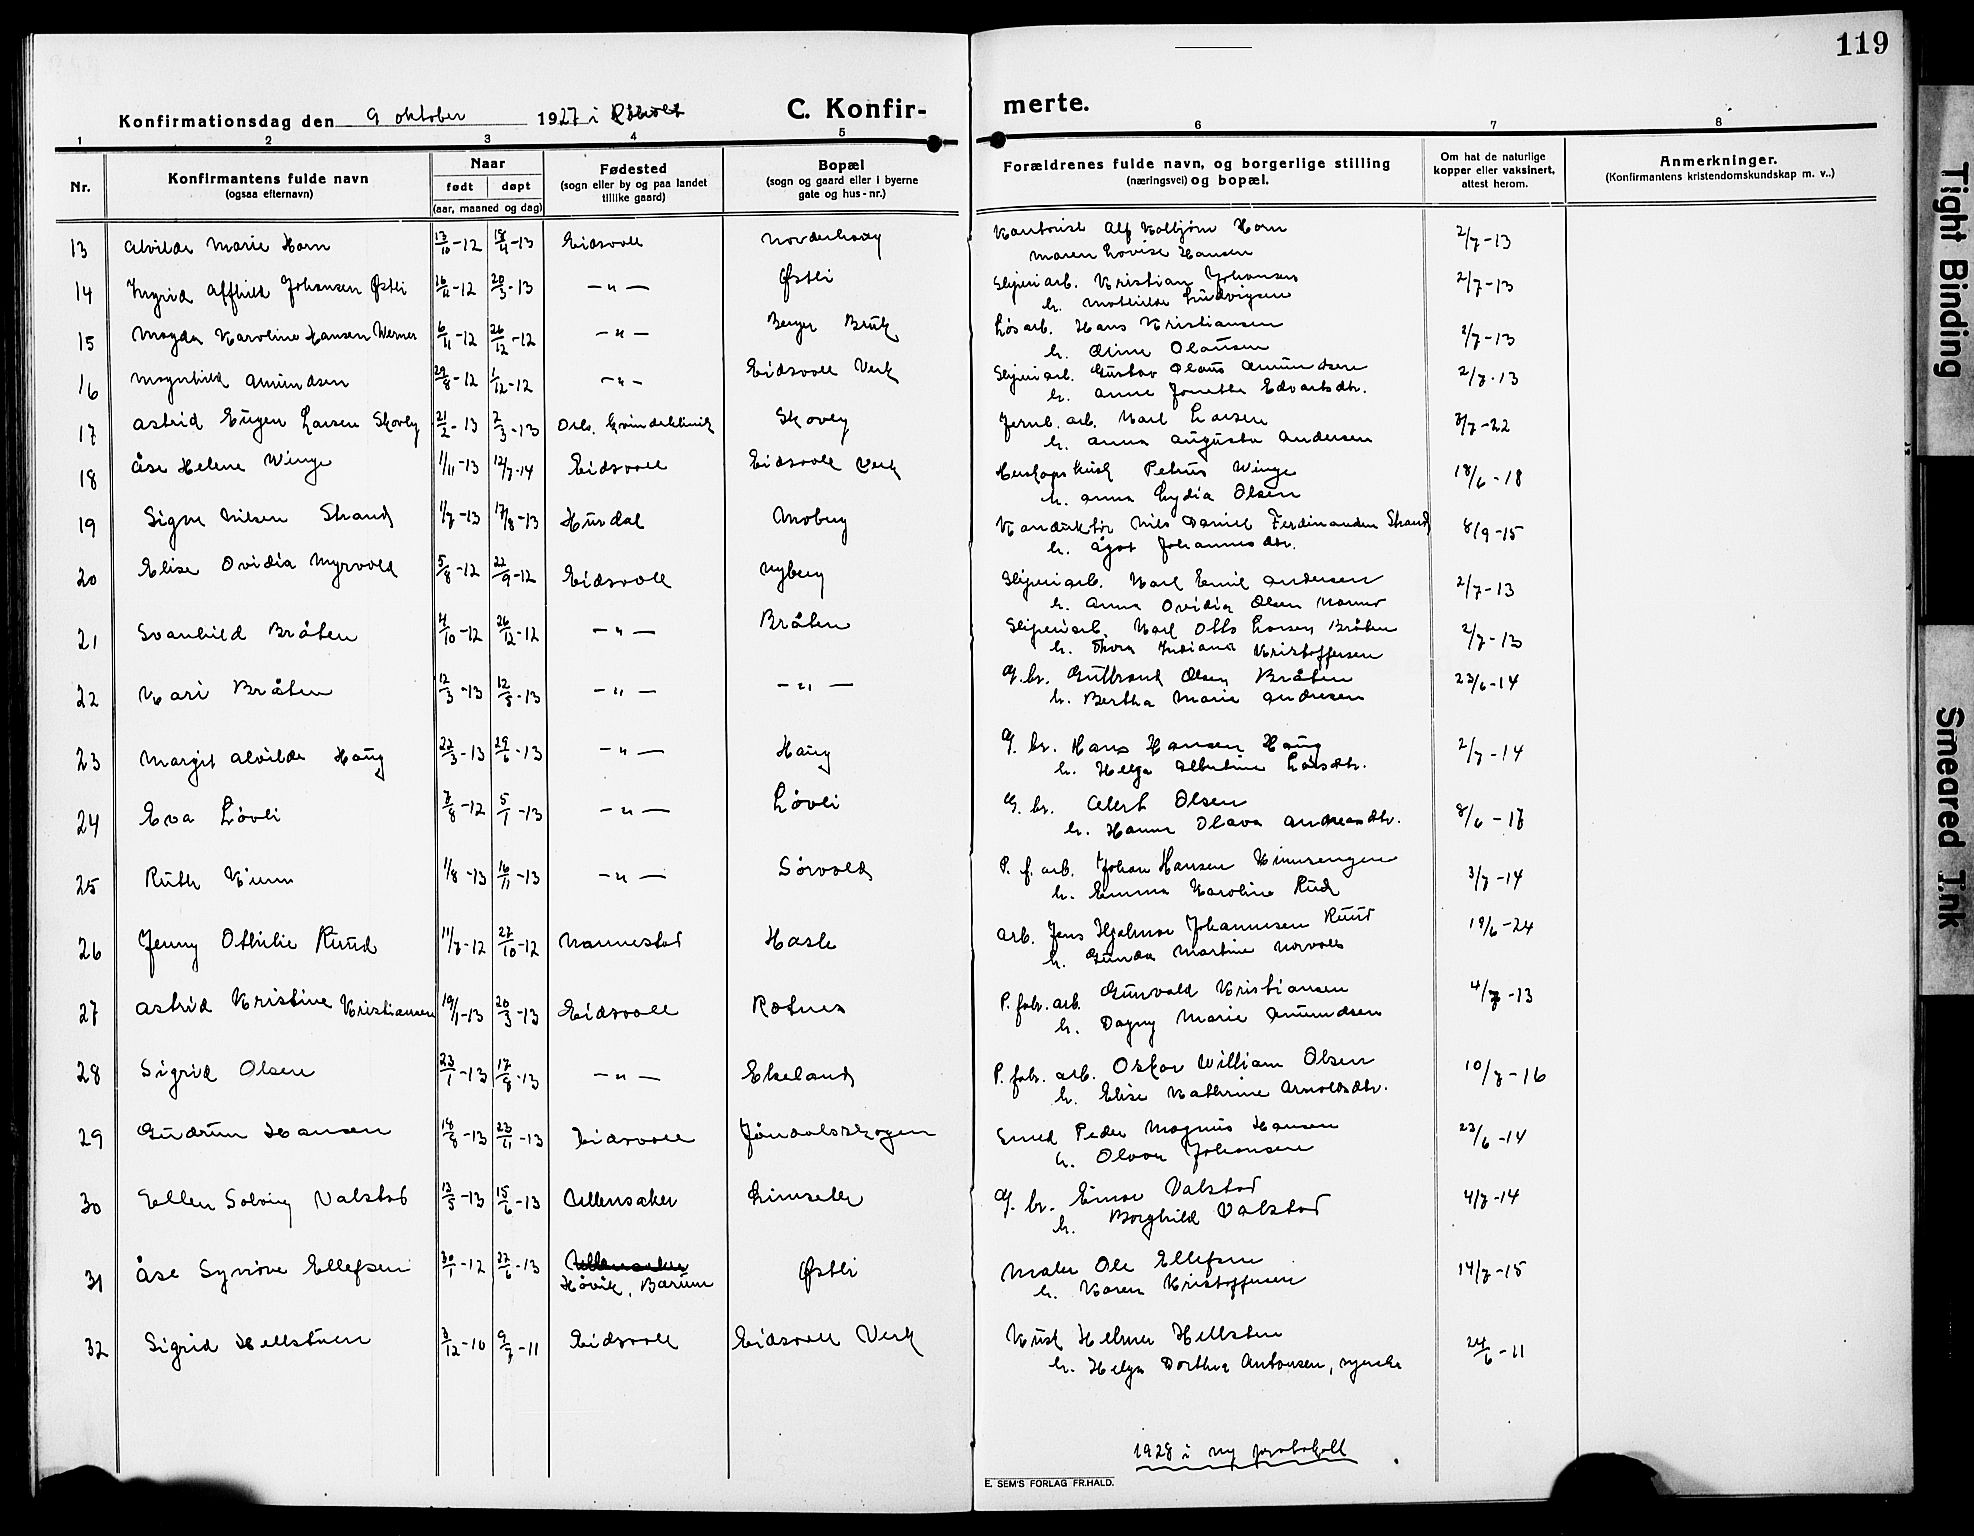 119
Konfirmationsdag den 9 oktober 1927 i Råholt
C. Konfirmerte.
1 2 3 4 5 6 7 8
Nr.
Konfirmantens fulde navn
(ogsaa efternavn)
Naar
født døpt
(aar, maaned og dag)
Fødested
(sogn eller by og paa landet
tillike gaard)
Bopæl
(sogn og gaard eller i byerne
gate og hus-nr.)
Forældrenes fulde navn, og borgerlige stilling
(næringsvei) og bopæl.
Om hat de naturlige
kopper eller vaksinert,
attest herom.
Anmerkninger.
(Konfirmantens kristendomskundskap m. v.)
13 Alvilde Marie Horn 13/10-12 18/4-13 Eidsvoll Norderhaug Kontorist Alf Kolbjørn Horn 2/7-13
Maren Lovise Hansen
14 Ingrid Affhild Johansen Østli 16/12-12 20/3-13 -"- Østli Sliperiarb. Kristian Johansen 2/7-13
h. Mathilde Ludvigsen
15 Magda Karoline Hansen Werner 6/11-12 26/12-12 -"- Berger Bruk Løsarb. Hans Kristiansen 2/7-13
h. Oline Olausen
16 Magnhild Amundsen 29/8-12 1/12-12 -"- Eidsvoll Verk Sliperiarb. Gustav Olaus Amundsen 2/7-13
h. Anne Jonetta Edvartsdtr.
17 Astrid Eugen Larsen Skovly 21/2-13 2/3-13 Oslo, Kvindeklinik Skovly Jernb. arb. Karl Larsen 3/7-22
h. Anna Augusta Andersen
18 Åse Helene Winge 1/11-13 12/7-14 Eidsvoll Eidsvoll Verk Herskapskusk Petrus Winge 18/6-18
h. Anna Lydia Olsen
19 Signe Nilsen Strand 1/7-13 17/8-13 Hurdal Moberg Konduktør Nils Daniel Ferdinandsen Strand 8/9-15
h. Ågot Johannesdtr.
20 Elise Ovidia Myrvold 5/8-12 22/9-12 Eidsvoll Nyberg Sliperiarb. Karl Emil Andersen 2/7-13
h. Anna Ovidia Olsen
21 Svanhild Bråten 4/10-12 26/12-12 -"- Bråten Sliperiarb. Karl Otto Larsen Bråten 2/7-13
h. Thora Indiana Kristoffersen
22 Kari Bråten 12/3-13 12/5-13 -"- -"- G.br. Gulbrand Olsen Bråten 23/6-14
h. Bertha Marie Andresen
23 Margit Alvilde Haug 22/3-13 29/6-13 -"- Haug G. br. Hans Hansen Haug 2/7-14
h. Helga Albertine Larsdtr.
24 Eva Løvli 7/8-12 5/1-13 -"- Løvli G. br. Albert Olsen 8/6-18
h. Hanna Olava Andreasdtr.
25 Ruth Vinn 1/8-13 16/11-13 -"- Sørvold P. f. arb. Johan Hansen 3/7-14
h. Emma Karoline Rud
26 Jenny Othilie Ruud 11/7-12 27/10-12 Nannestad Hasle Arb. Jens Hjalmar Johannesen Ruud 19/6-24
h. Gunda Martine
27 Astrid Kristine Kristiansen 19/1-13 20/3-13 Eidsvoll Rotnes P. fabr. arb. Gunvald Kristiansen 4/7-13
h. Dagny Marie Amundsen
28 Sigrid Olsen 23/1-13 17/8-13 -"- Ekeland P. fabr. arb. Oskar William Olsen 10/7-16
h. Elise Kathrine Arnoldsdtr.
29 Gudrun Hansen 18/8-13 23/11-13 Eidsvoll Jøndalsskogen Smed Peder Magnus Hansen 23/6-14
h. Olava Johansen
30 Ellen Solveig Valstad 13/5-13 15/6-13 Ullensaker G. br. Einar Valstad 4/7-14
h. Borghild Valstad
31 Åse Synnøve Ellefsen 30/1-12 22/6-13 Ullensaker Østli Maler Ole Ellefsen 14/7-15
Høvik, Bærum h. Karen Kristoffersen
32 Sigrid Hellstuen 3/12-10 9/7-11 Eidsvoll Eidsvoll Verk Kusk Helmer Hellsten 24/6-11
h. Helga Dorthea Antonsen, svenske
1928 i ny protokoll
E. SEM'S FORLAG FR.HALD.
Tight Binding
Smeared Ink